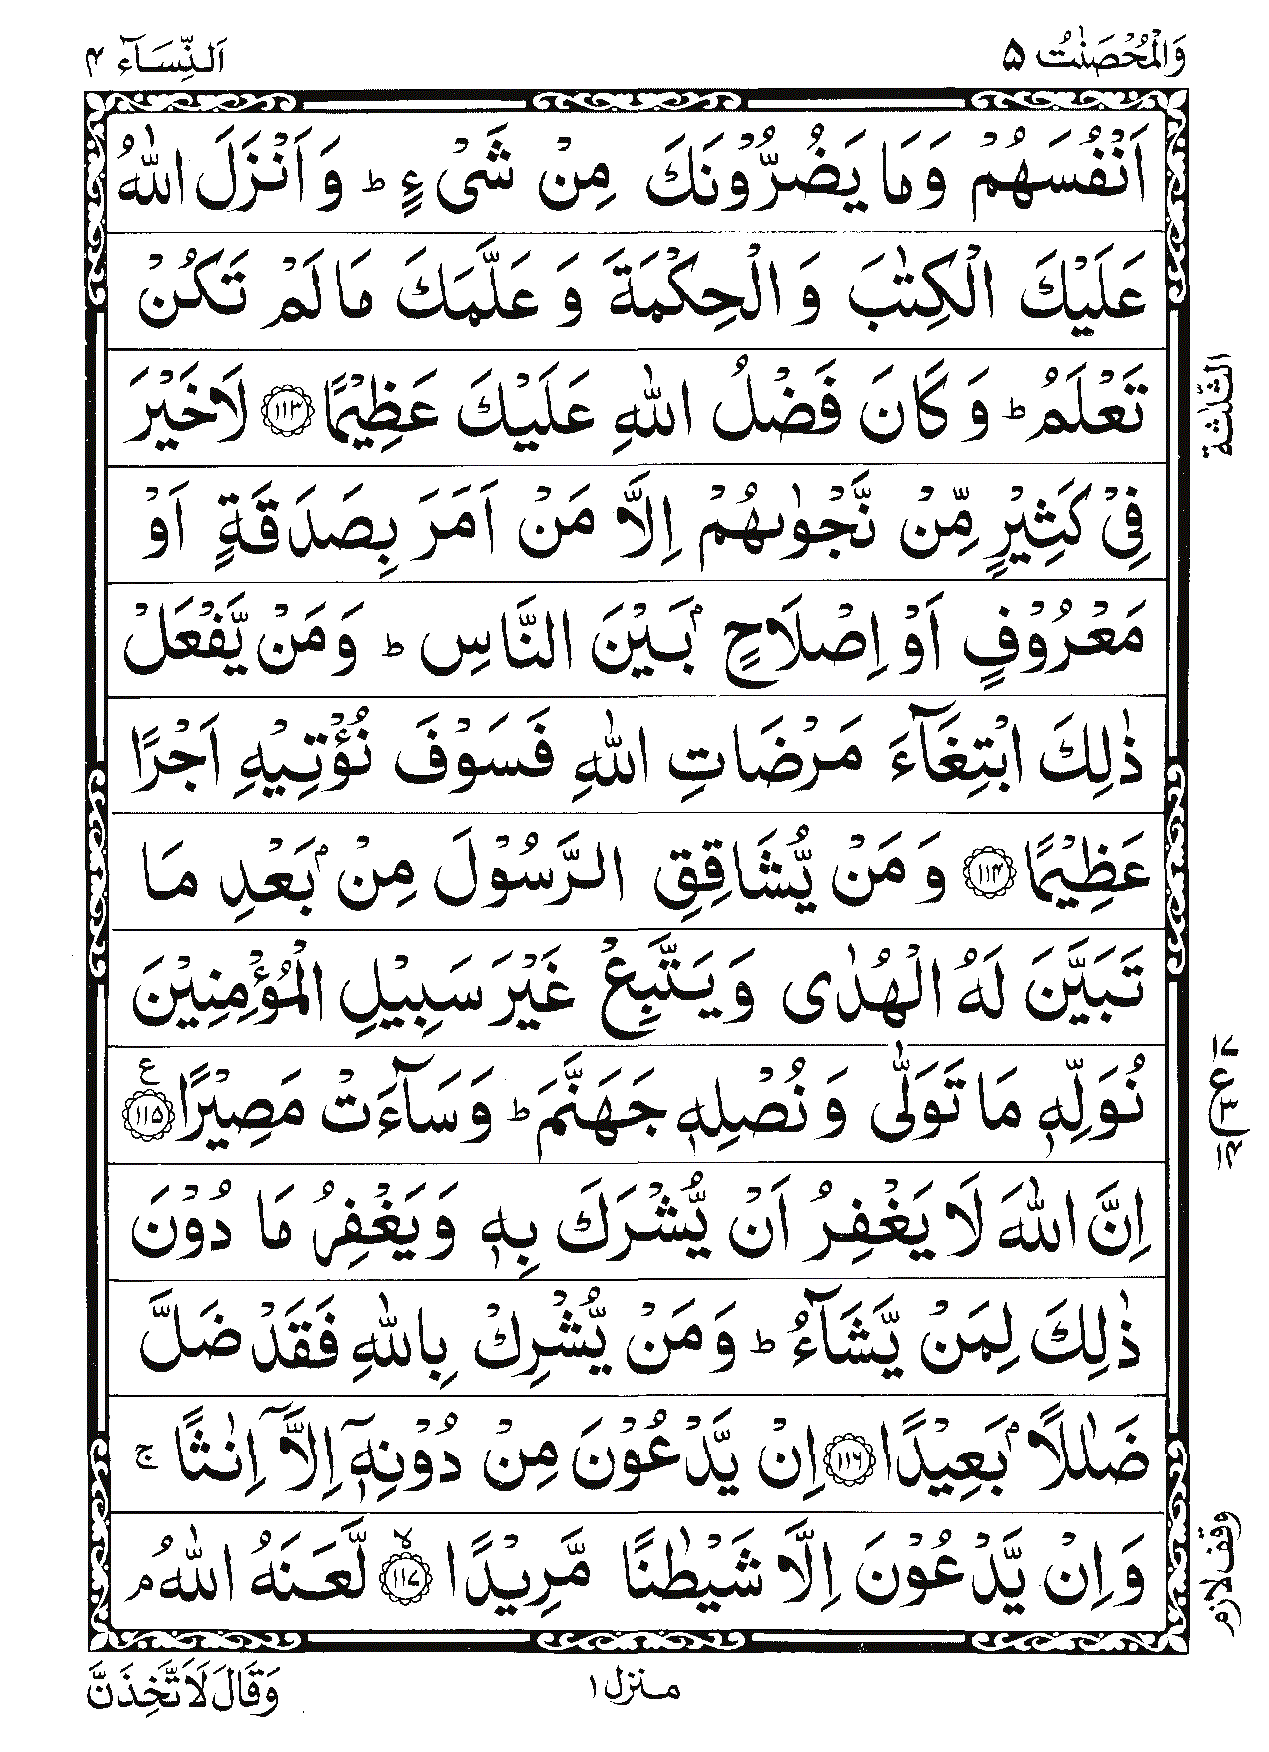 وَالْمُحْصَنٰتُ ۵
اَلنِّسَآء ۴
اَنْفُسَهُمْ وَمَا يَضُرُّوْنَكَ مِنْ شَیْءٍ ؕ وَ اَنْزَلَ اللّٰهُ
عَلَيْكَ الْكِتٰبَ وَ الْحِكْمَةَ وَ عَلَّمَكَ مَا لَمْ تَكُنْ
تَعْلَمُ ؕ وَ كَانَ فَضْلُ اللّٰهِ عَلَيْكَ عَظِيْمًا ۝۱۱۳ لَا خَيْرَ
الثلٰثة
فِیْ كَثِيْرٍ مِّنْ نَّجْوٰىهُمْ اِلَّا مَنْ اَمَرَ بِصَدَقَةٍ اَوْ
مَعْرُوْفٍ اَوْ اِصْلَاحٍۭ بَيْنَ النَّاسِ ؕ وَمَنْ يَّفْعَلْ
ذٰلِكَ ابْتِغَآءَ مَرْضَاتِ اللّٰهِ فَسَوْفَ نُؤْتِيْهِ اَجْرًا
عَظِيْمًا ۝۱۱۴ وَ مَنْ يُّشَاقِقِ الرَّسُوْلَ مِنْۢ بَعْدِ مَا
تَبَيَّنَ لَهُ الْهُدٰى وَيَتَّبِعْ غَيْرَ سَبِيْلِ الْمُؤْمِنِيْنَ
نُوَلِّهٖ مَا تَوَلّٰى وَ نُصْلِهٖ جَهَنَّمَ ؕ وَسَآءَتْ مَصِيْرًا ۝۱۱۵ ع
۱۷ ع ۳ ۱۴
اِنَّ اللّٰهَ لَا يَغْفِرُ اَنْ يُّشْرَكَ بِهٖ وَيَغْفِرُ مَا دُوْنَ
ذٰلِكَ لِمَنْ يَّشَآءُ ؕ وَمَنْ يُّشْرِكْ بِاللّٰهِ فَقَدْ ضَلَّ
ضَلٰلًاۢ بَعِيْدًا ۝۱۱۶ اِنْ يَّدْعُوْنَ مِنْ دُوْنِهٖۤ اِلَّاۤ اِنٰثًا ۚ
وَ اِنْ يَّدْعُوْنَ اِلَّا شَيْطٰنًا مَّرِيْدًا ۝۱۱۷ ۙ لَّعَنَهُ اللّٰهُ ۘ
وقف لازم
منزل ۱
وَقَالَ لَاَتَّخِذَنَّ